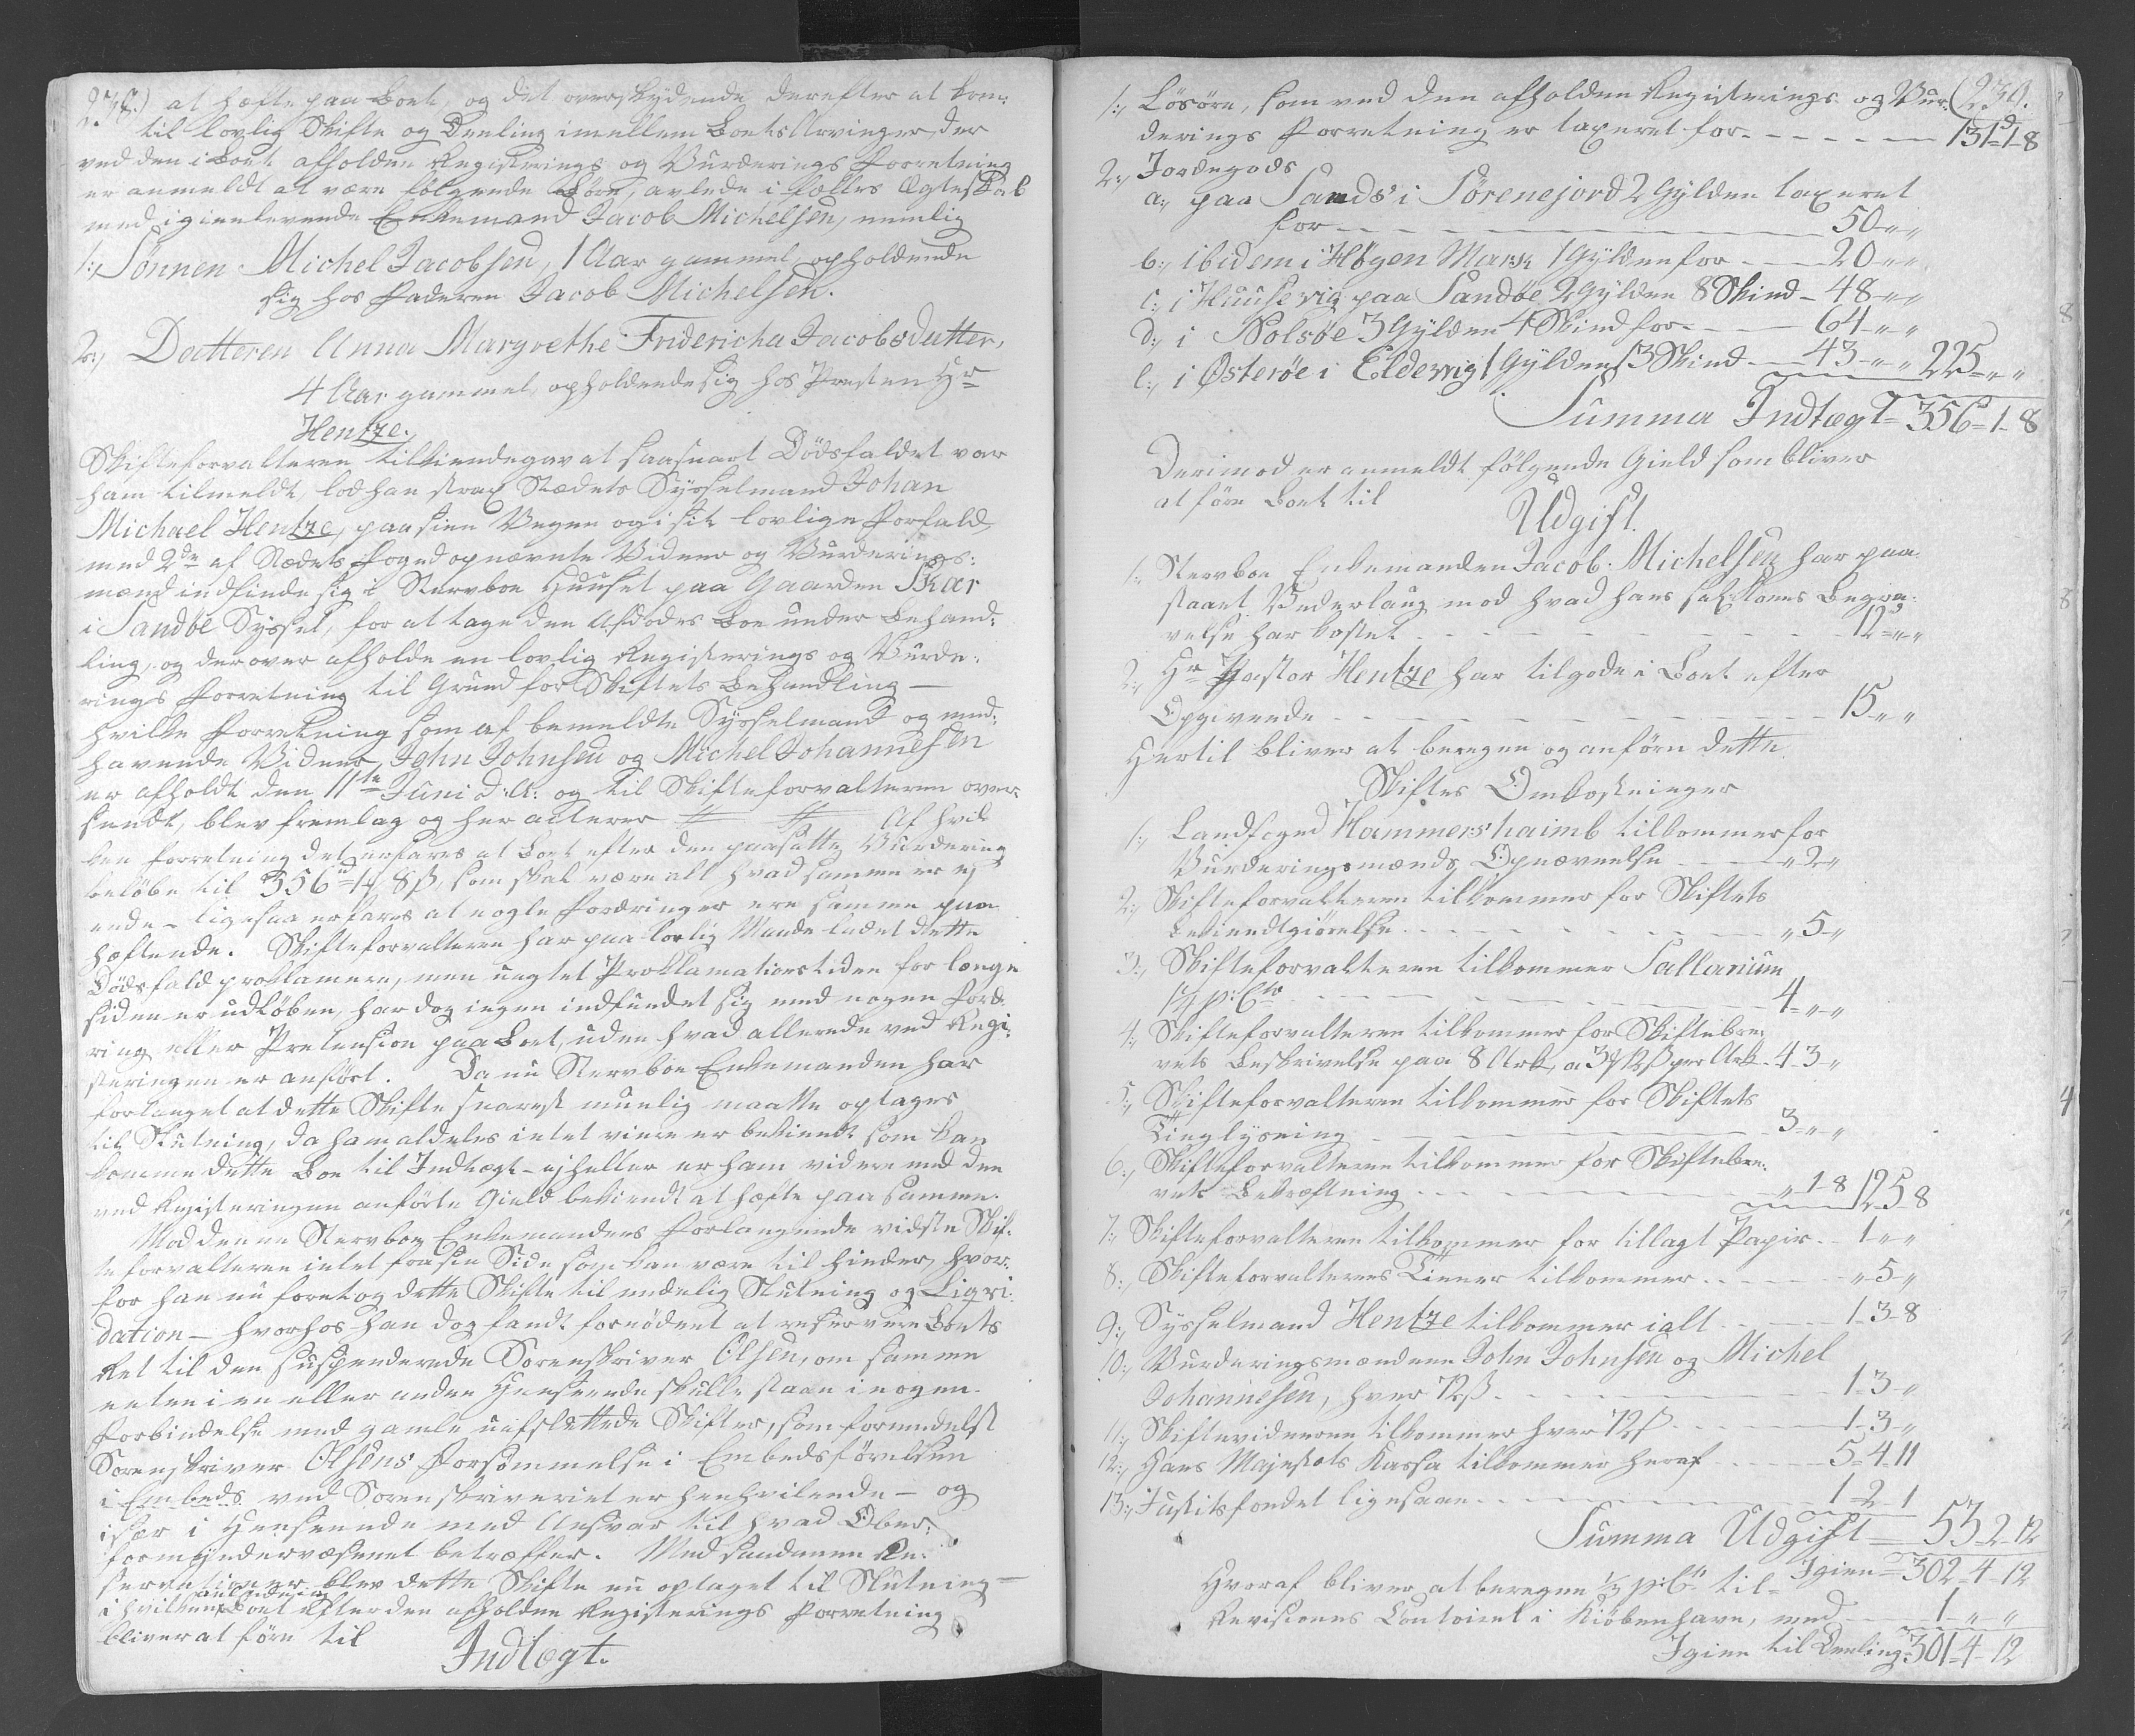 238.) at hæfte paa Boet, og det overskydende derefter at kom¬
til lovlig Skifte og Deeling imellem Boets Arvinger, der
ved den i Boet afholdne Registerings og Vurderings Forretning
er anmeldt at være følgende Børn, avlede i fælles Ægteskab
med igienlevende Enkemand Jacob Michelsen, nemlig
1:, Sønnen Michel Jacobsen, 1 Aar gammel, opholdende
sig hos Faderen Jacob Michelsen.
2:, Datteren Anna Margrethe Fridericha Jacobsdatter,
4 Aar gammel, opholdende sig hos Præsten Hr
Hentze.
Skifteforvalteren tilkiendegav at saasnart Dødsfaldet var
ham tilmeldt, lod han strax Stædets Sysselmand Johan
Michael Hentze, paa sine Vegne og i sit lovlige Forfald,
med 2de af Stædets Foged opnævnte Vidner og Vurderings:
mænd indfinde sig i Stervboe Huuset paa Gaarden Skar
i Sandøe Syssel, for at tage den Afdødes Boe under Behand:
ling, og derover afholde en lovlig Registerings og Vurde:
rings Forretning til Grund for Skiftets Behandling —
hvilke Forretning som af bemeldte Sysselmand og med:
havende Vidner, John Johnsen og Michel Johannesen
er afholdt den 11te Juni d: A: og til Skifteforvalteren over¬
sendt, blev fremlag og her acterer # # Af hvil
ken Forretning det erfares at Boet efter den paasatte Vurdering
beløbe til 356 rd 1 # 8 ß, som skal være alt hvad samme er ej
ende — ligesaa erfares at nogle Fordringer ere samme paa
hæftende. Skifteforvalteren har paa lovlig Maade ladet dette
Dødsfald proklamere, men uagtet Proklamationstiden for længe
siden er udløben, har dog ingen indfundet sig med nogen Ford:
ring eller Pretension paa Boet, uden hvad allerede ved Regi:
steringen er anført. Da nu Stervboe Enkemanden har
forlanget at dette Skifte snarest muelig maatte optages
til Slutning, da ham aldeles intet viere er bekiendt som kan
komme dette Boe til Indtægt — ej heller er ham videre end den
ved Registeringen anførte Gield bekiendt at hæfte paa samme.
Mod denne Stervboe Enkemandens Forlangende vidste Skif:
teforvalteren intet fra sin Side som kan være til Hinder, hvor:
for han nu foretog dette Skifte til endelig Slutning og Liqvi:
dation — hvorhos han dog fandt fornødent at reservere Boets
Ret til den suspenderede Sorenskriver Olsen, om samme
enten i en eller anden Henseende skulle staae i nogen
Forbindelse med gamle uafsluttede Skifter, som formedelst
Sorenskriver Olsens Forsømmelse i Embedsførelsen
i Embeds ved Sorenskriveriet er henhvilende — og
især i Henseende med Ansvar til hvad Ober:
formyndervæsenet betræffer. Med saadanne Re:
servationer blev dette Skifte nu optaget til Slutning —
i hvilken Boet efter den afholdne Registerings Forretning
bliver at føre til
Indtægt.
(239.
1:, Løsøre, som ved den afholdne Registerings og Vur:
derings Forretning er taxeret for — 131 d 1 8
2:, Jordegods
a:, paa Sands i Sørenejord 2 Gylden taxeret
for — 50 " "
b:, ibidem i Høgen Mark 1 Gylden for — 20 " "
c:, i Huusevig paa Sandøe 2 Gylden 8 Skind — 48 " "
d:, i Nolsøe 3 Gylden 4 Skind for — 64 " "
e:, i Østerøe i Eldevig 1 Gylden 13 Skind — 43 " " 225 " "
Summa Indtægt — 356 — 1 — 8
Derimod er anmeldt følgende Gield som bliver
at føre Boet til
Udgift.
1:, Stervboe Enkemanden Jacob Michelsen har paa
staaet Vederlaug mod hvad hans sal: Kones Begra:
velse har kostet — 12 " "
2:, Hr Pastor Hentze har tilgode i Boet efter
Opgivende — 15 " "
Hertil bliver at beregne og anføre dette
Skiftes Omkostninger
1:, Landfoged Hammershaimb tilkommer for
Vurderingsmænds Opnævnelse — " 2 "
2:, Skifteforvalteren tilkommer for Skiftets
Bekiendtgiørelse — " 5 "
3:, Skifteforvalteren tilkommer Sallarium
p: Cto — 4 " "
4:, Skifteforvalteren tilkommer for Skiftebre:
vets Beskrivelse paa 8 Ark, a 3 # 12 ß per Ark — 4 — 3 — "
5:, Skifteforvalteren tilkommer for Skiftets
Tinglysning — 3 " "
6:, Skifteforvalteren tilkommer for Skiftebre:
vets Bekræftning — " 1 8 12 — 5 8
7:, Skifteforvalteren tilkommer for tillagt Papir — 1 " "
8:, Skifteforvalterens Tiener tilkommer — " 5 "
9:, Sysselmand Hentze tilkommer i alt — 1 — 3 — 8
10:, Vurderingsmændene John Johnsen og Michel
Johannesen, hver 72 ß — 1 — 3 — "
11:, Skiftevidnerne tilkommer hver 72 ß — 1 — 3 — "
12:, Hans Majestæts Kassa tilkommer heraf — 5 — 4 — 11
13:, Justitsfondet ligesaa — 1 — 2 — 1
Summa Udgift — 53 — 2 — 12
Igien — 302 — 4 — 12
Hvoraf bliver at beregne ⅓ p: Ct til
Revisions Contoiret i Kiøbenhavn, med — 1 " "
Igien til Deeling — 301 — 4 — 12